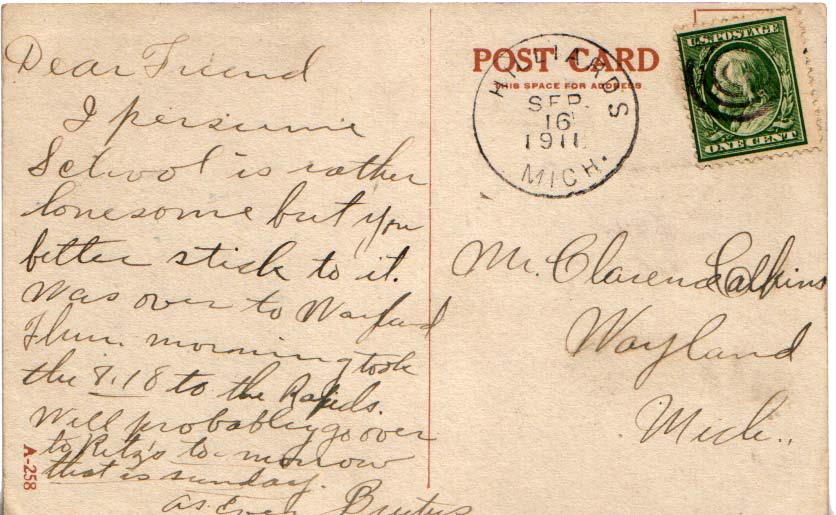 Dear Friend
I persume
School is rather
lonesome but you
better stick to it.
Was over to Wayland
Thur. morning took
the 8.18 to the Rapids.
Will probabliy go over
to Ritz's to-morrow
that is sunday.
as Ever Brutus
A-258
POST CARD
THIS SPACE FOR ADDRESS
HILLIARDS
SEP.
16
1911
MICH.
U.S. POSTAGE
ONE CENT
Mr. Clarence Calkins
Wayland
Mich.